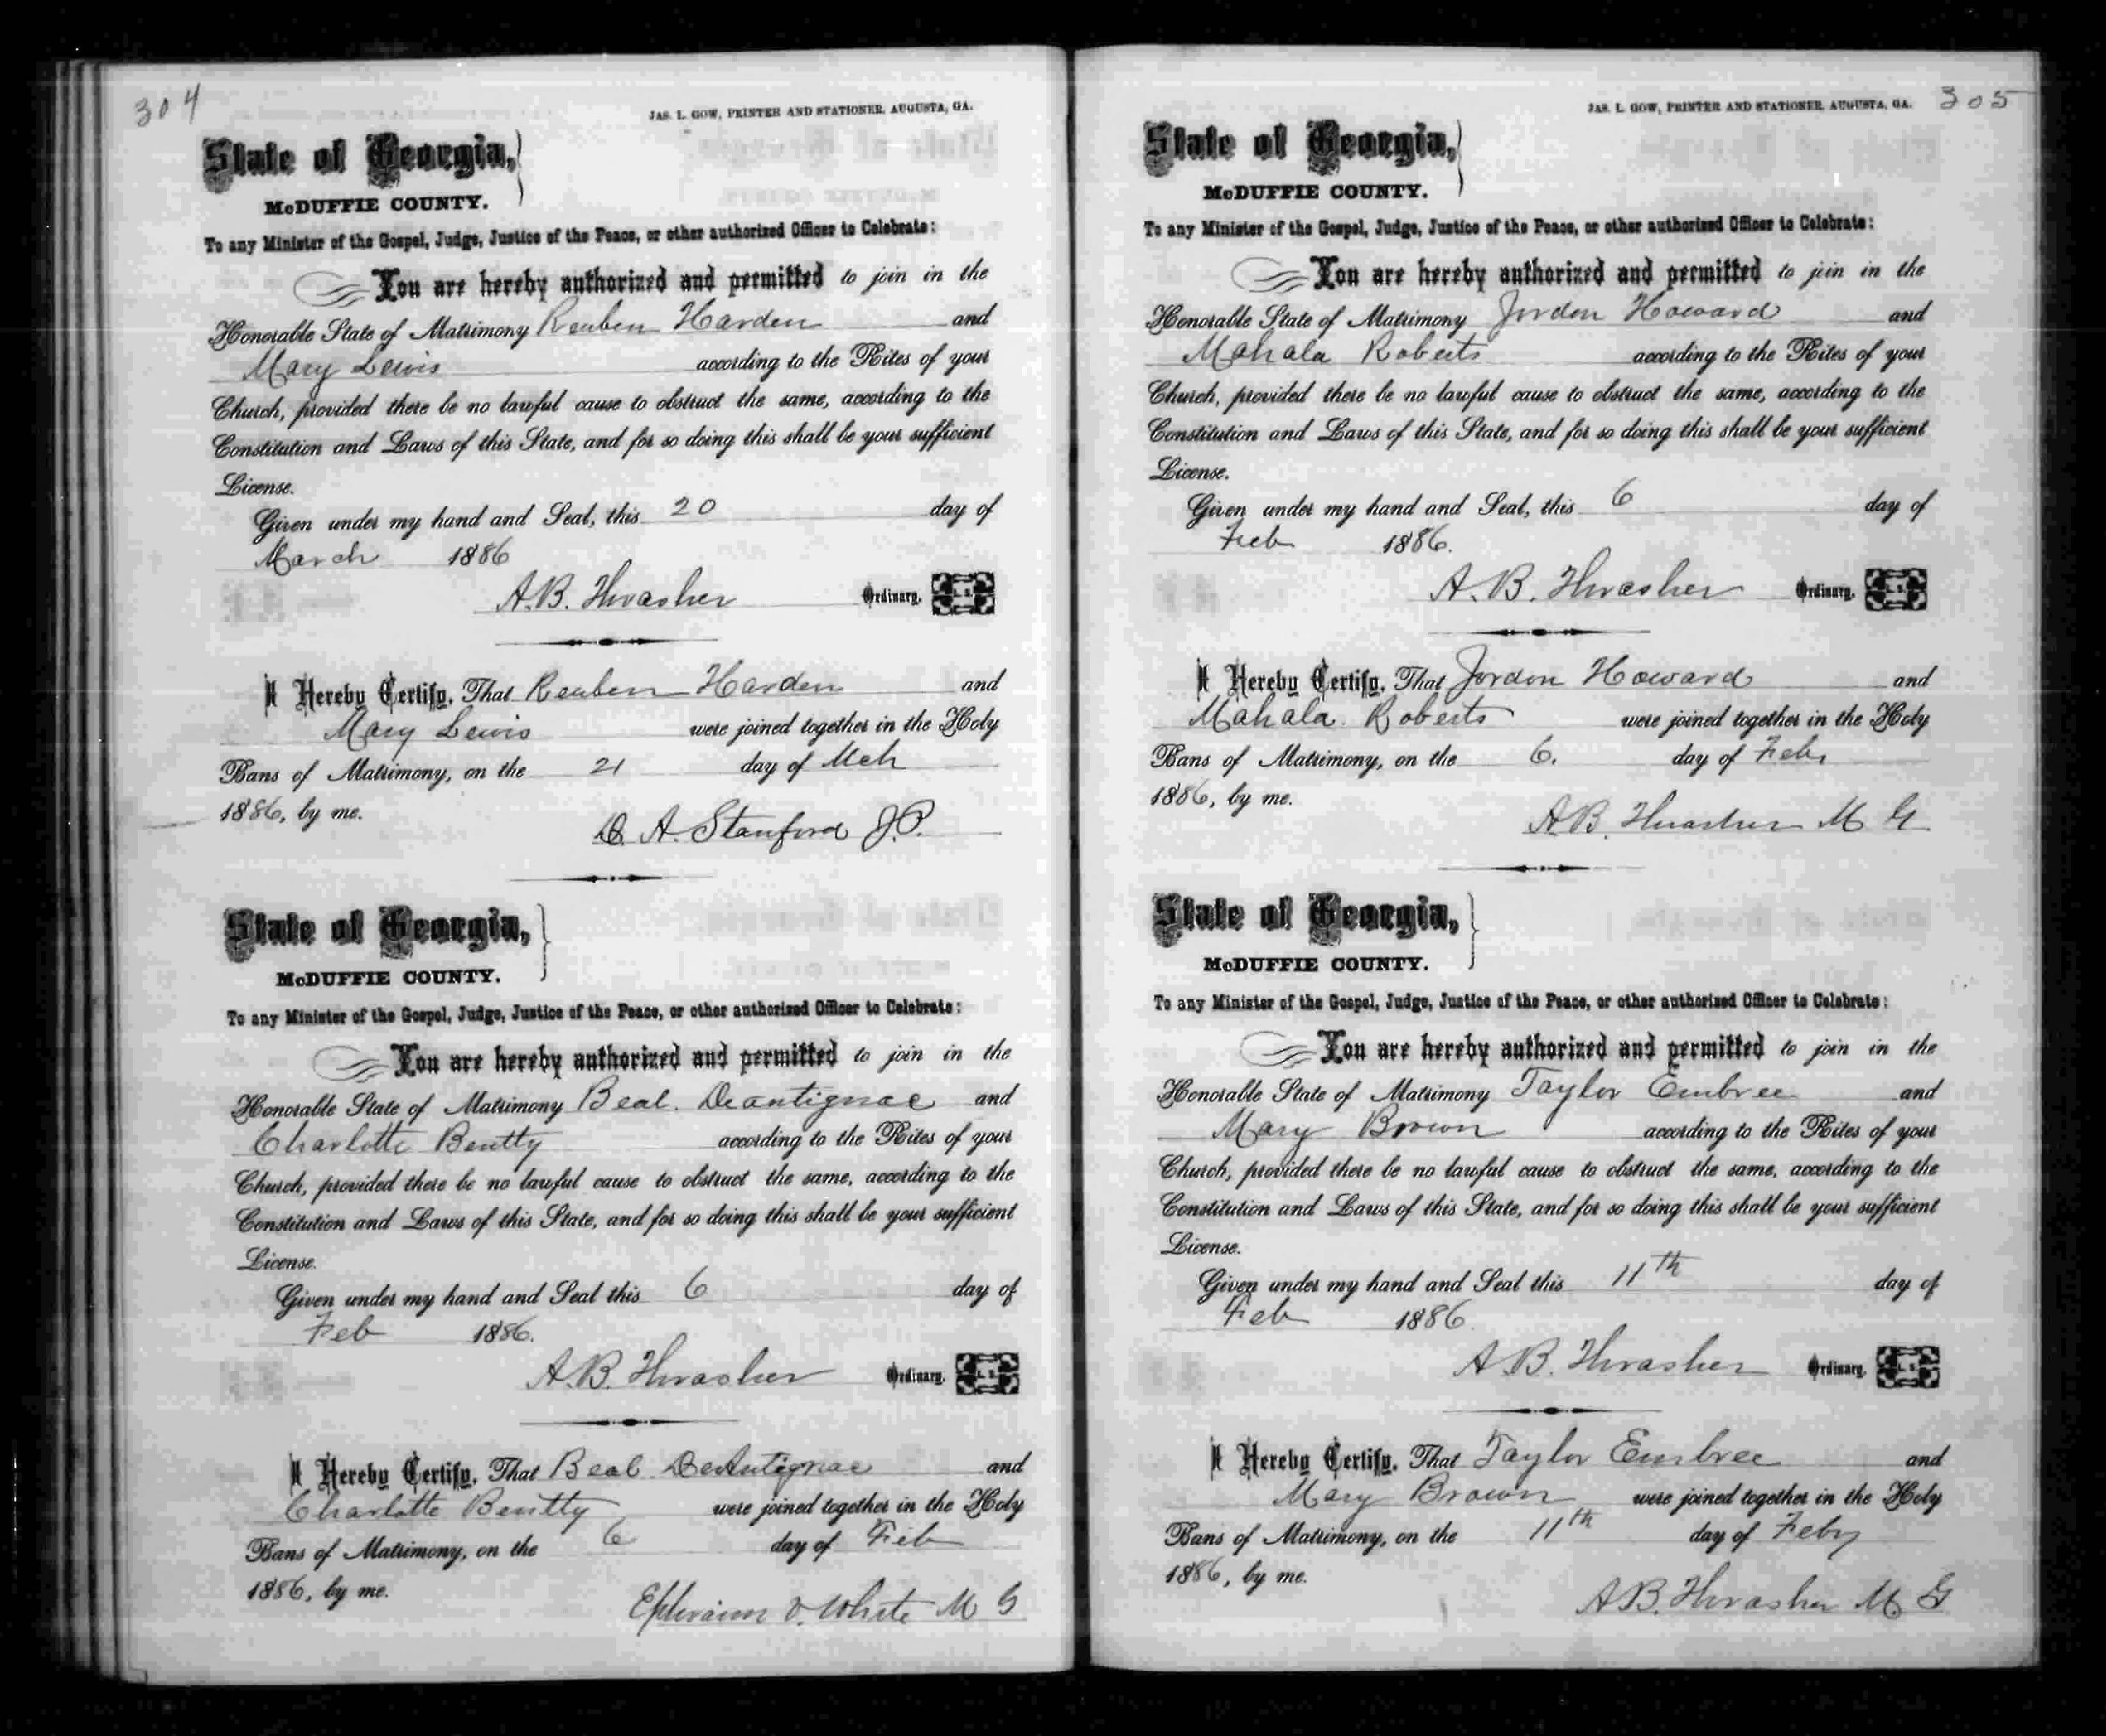 304
JAS. L. GOW, PRINTER AND STATIONER, AUGUSTA, GA.
State of Georgia,
McDUFFIE COUNTY.
To any Minister of the Gospel, Judge, Justice of the Peace, or other authorized Officer to Celebrate:
You are hereby authorized and permitted to join in the
Honorable State of Matrimony Reuben Harden and
Mary Lewis according to the Rites of your
Church, provided there be no lawful cause to obstruct the same, according to the
Constitution and Laws of this State, and for so doing this shall be your sufficient
License.
Given under my hand and Seal, this 20 day of
March 1886
A.B. Thrasher Ordinary. L. S.
I Hereby Certify, That Reuben Harden and
Mary Lewis were joined together in the Holy
Bans of Matrimony, on the 21 day of Mch
1886, by me.
D. A. Stanford J.P.
State of Georgia,
McDUFFIE COUNTY.
To any Minister of the Gospel, Judge, Justice of the Peace, or other authorized Officer to Celebrate:
You are hereby authorized and permitted to join in the
Honorable State of Matrimony Beal. Deantignac and
Charlotte Bentty according to the Rites of your
Church, provided there be no lawful cause to obstruct the same, according to the
Constitution and Laws of this State, and for so doing this shall be your sufficient
License.
Given under my hand and Seal this 6 day of
Feb 1886.
A.B. Thrasher Ordinary. L. S.
I Hereby Certify, That Beal DeAntignac and
Charlotte Bentty were joined together in the Holy
Bans of Matrimony, on the 6 day of Feb
1886, by me.
Ephraim V. White M G
305
JAS. L. GOW, PRINTER AND STATIONER, AUGUSTA, GA.
State of Georgia,
McDUFFIE COUNTY.
To any Minister of the Gospel, Judge, Justice of the Peace, or other authorized Officer to Celebrate:
You are hereby authorized and permitted to join in the
Honorable State of Matrimony Jordon Howard and
Mahala Roberts according to the Rites of your
Church, provided there be no lawful cause to obstruct the same, according to the
Constitution and Laws of this State, and for so doing this shall be your sufficient
License.
Given under my hand and Seal, this 6 day of
Feb 1886.
A. B. Thrasher Ordinary. L. S.
I Hereby Certify, That Jordon Howard and
Mahala Roberts were joined together in the Holy
Bans of Matrimony, on the 6. day of Feby
1886, by me.
A.B. Thrasher M G
State of Georgia,
McDUFFIE COUNTY.
To any Minister of the Gospel, Judge, Justice of the Peace, or other authorized Officer to Celebrate:
You are hereby authorized and permitted to join in the
Honorable State of Matrimony Taylor Embree and
Mary Brown according to the Rites of your
Church, provided there be no lawful cause to obstruct the same, according to the
Constitution and Laws of this State, and for so doing this shall be your sufficient
License.
Given under my hand and Seal this 11th day of
Feb 1886
A.B. Thrasher Ordinary. L. S.
I Hereby Certify, That Taylor Embree and
Mary Brown were joined together in the Holy
Bans of Matrimony, on the 11th day of Feby
1886, by me.
A.B. Thrasher M G